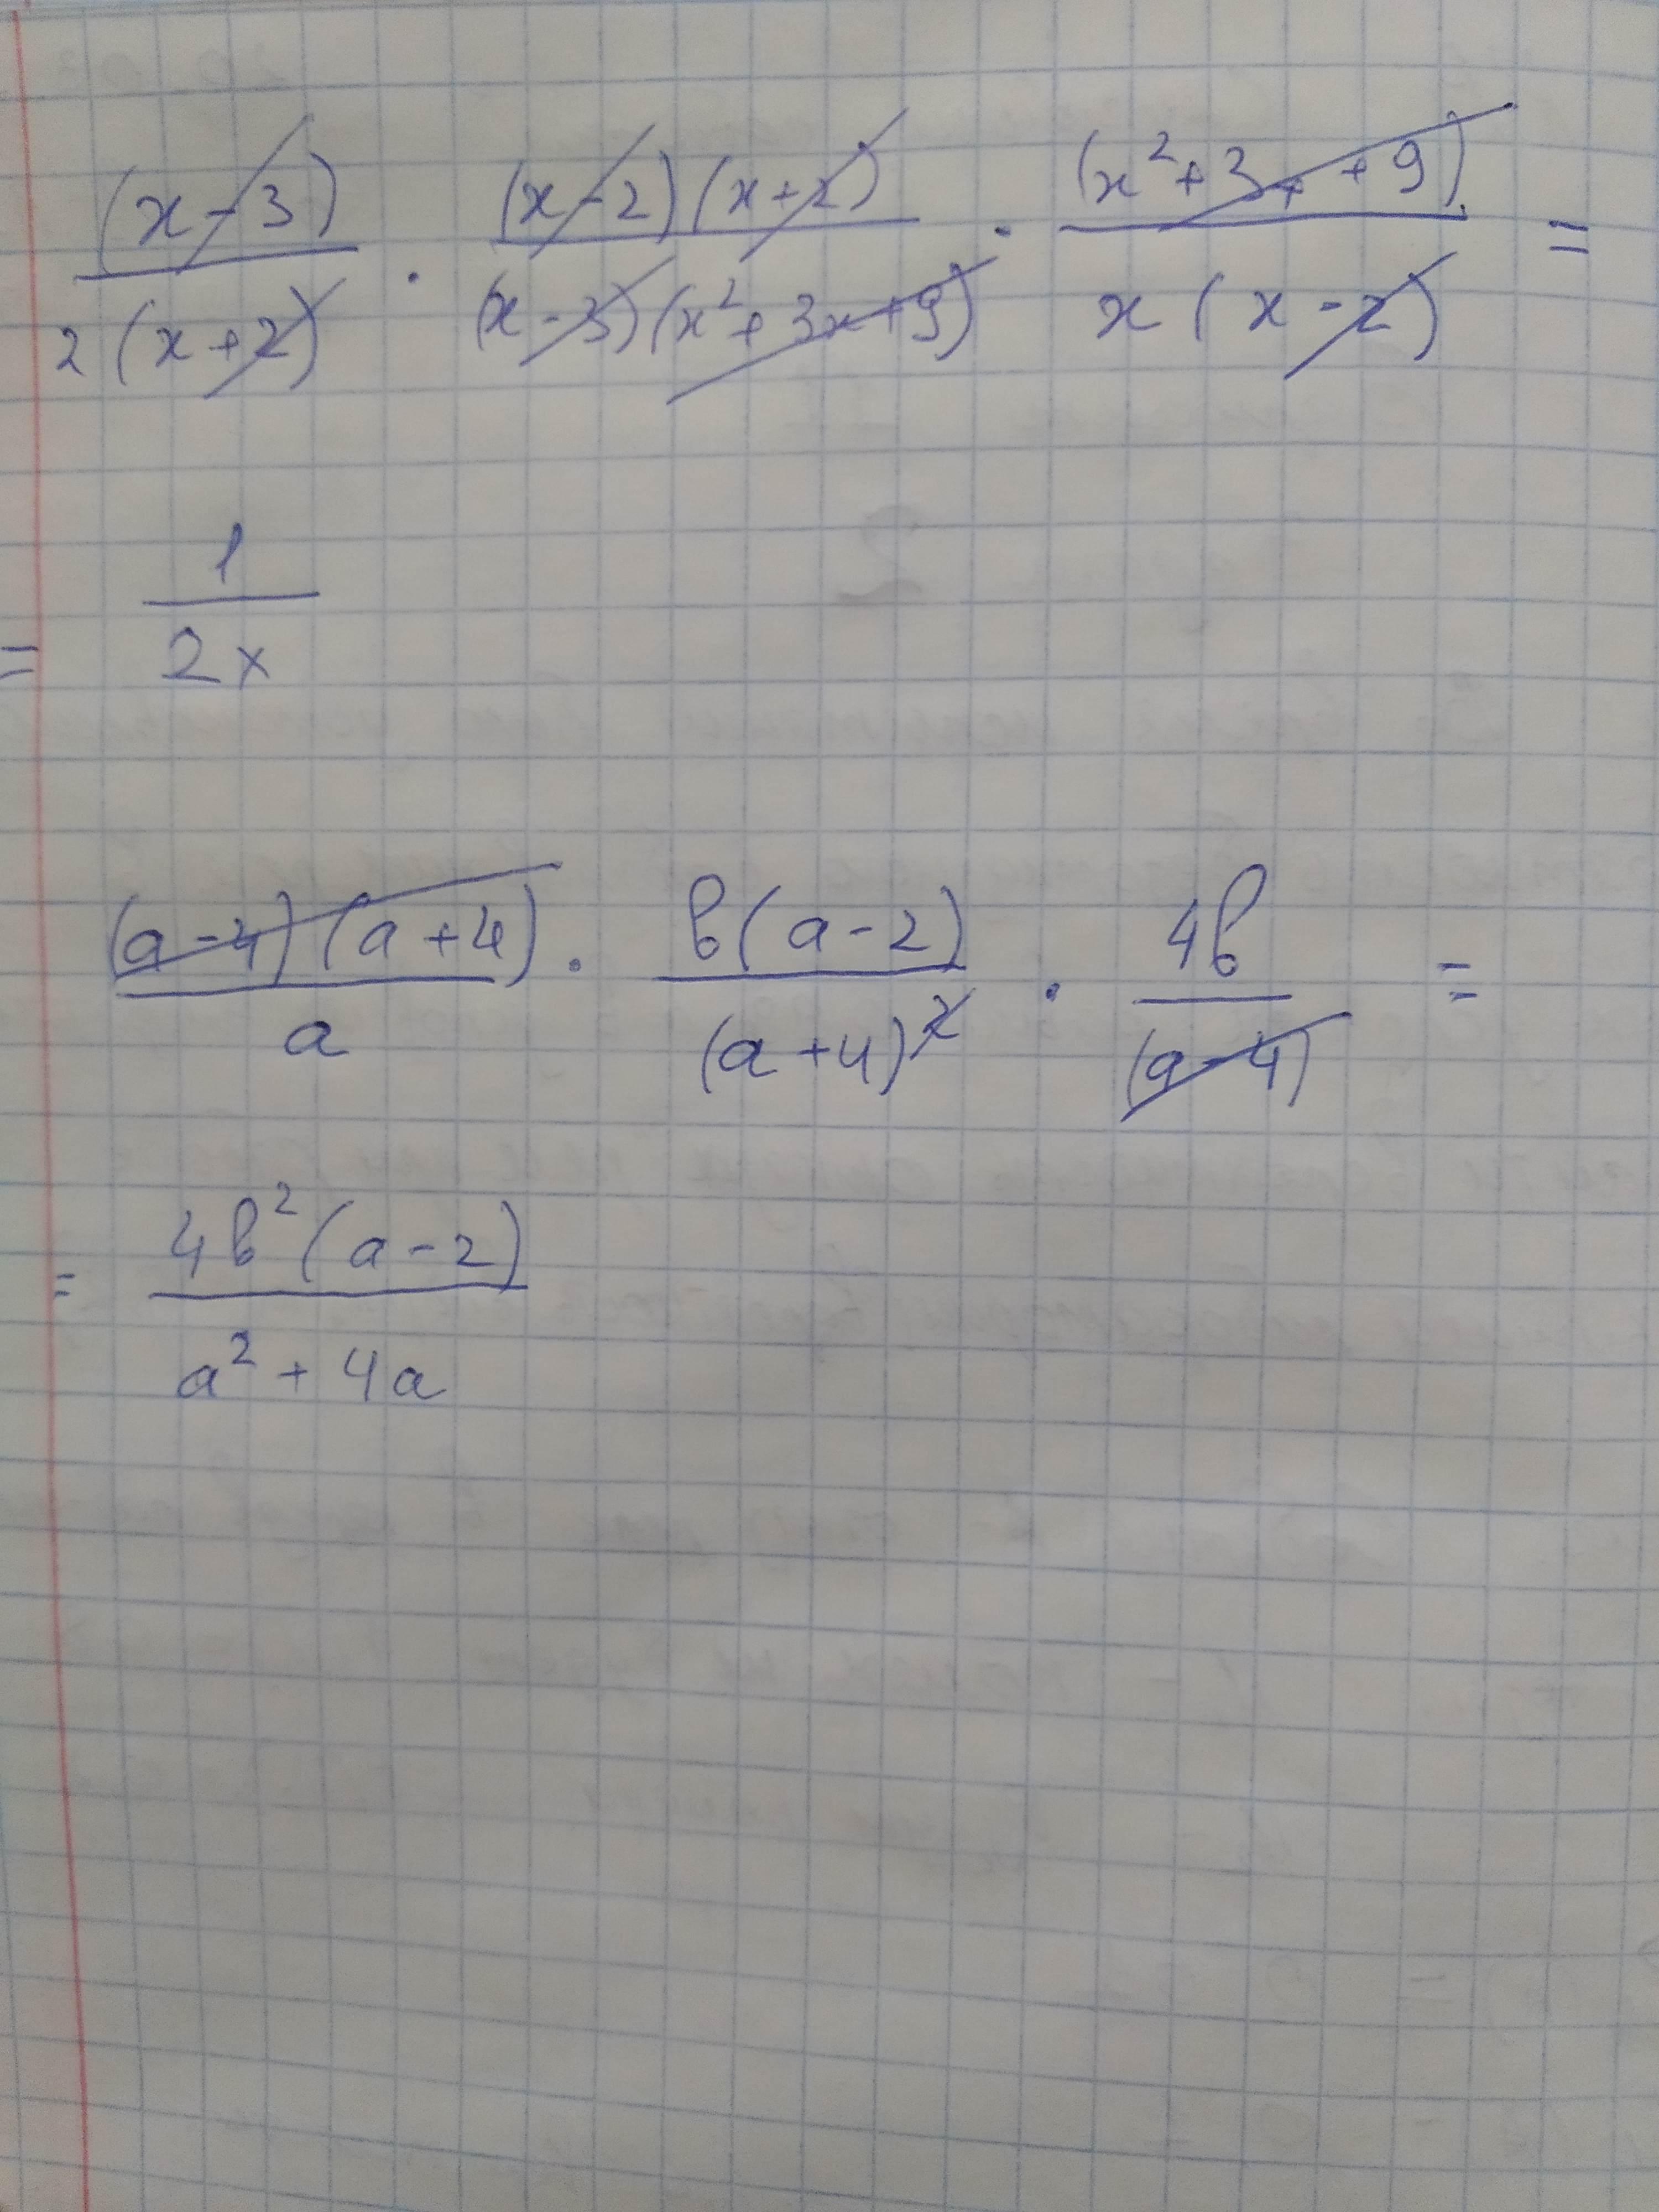 (x-3)/2(x+2) · (x-2)(x+2)/(x-3)(x²+3x+9) · (x²+3x+9)/x(x-2) =
= 1/2x
(a-4)(a+4)/a · b(a-2)/(a+4)² · 4b/(a-4) =
= 4b²(a-2)/a²+4a